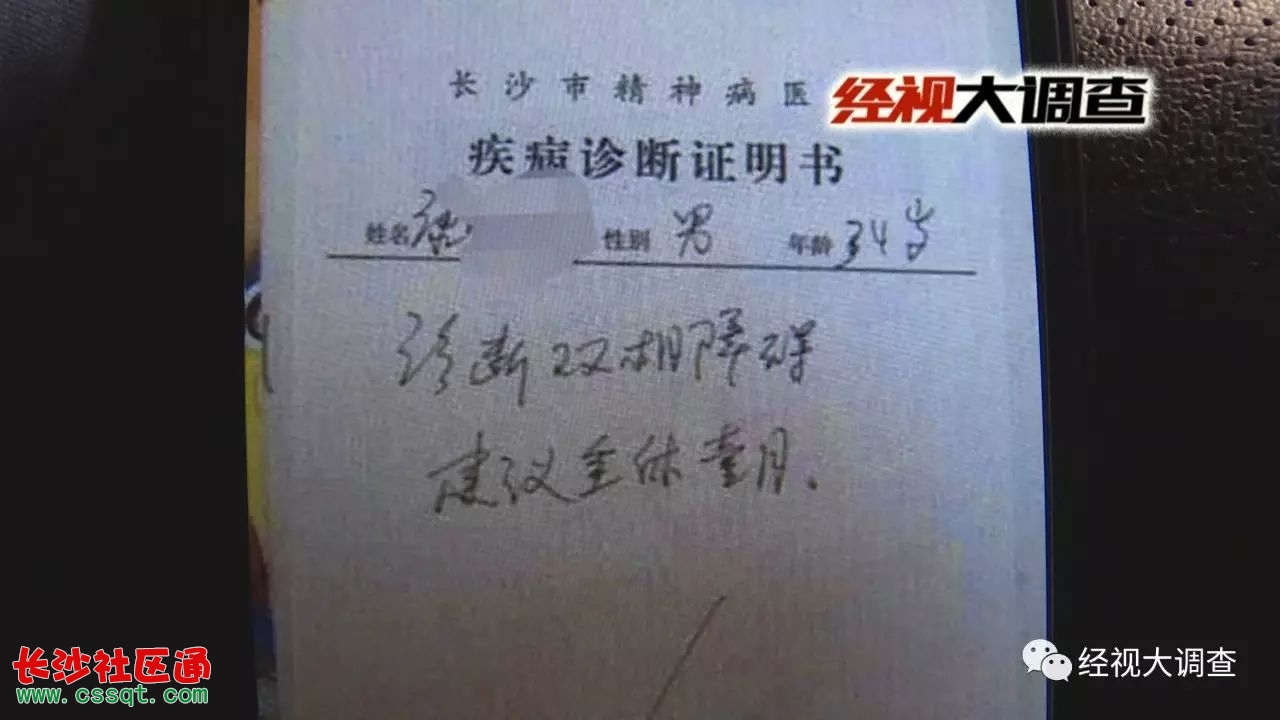 长沙市精神病医
经视大调查
疾病诊断证明书
姓名 性别 男 年龄 34岁
诊断双相障碍
建议全休壹月、
长沙社区通
www.cssqt.com
经视大调查